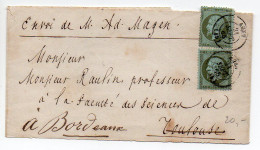 Envoi de M. Ad. Magen
Monsieur
Monsieur Raulin, professeur
à la Faculté des Sciences de
à Bordeaux Toulouse
20,-